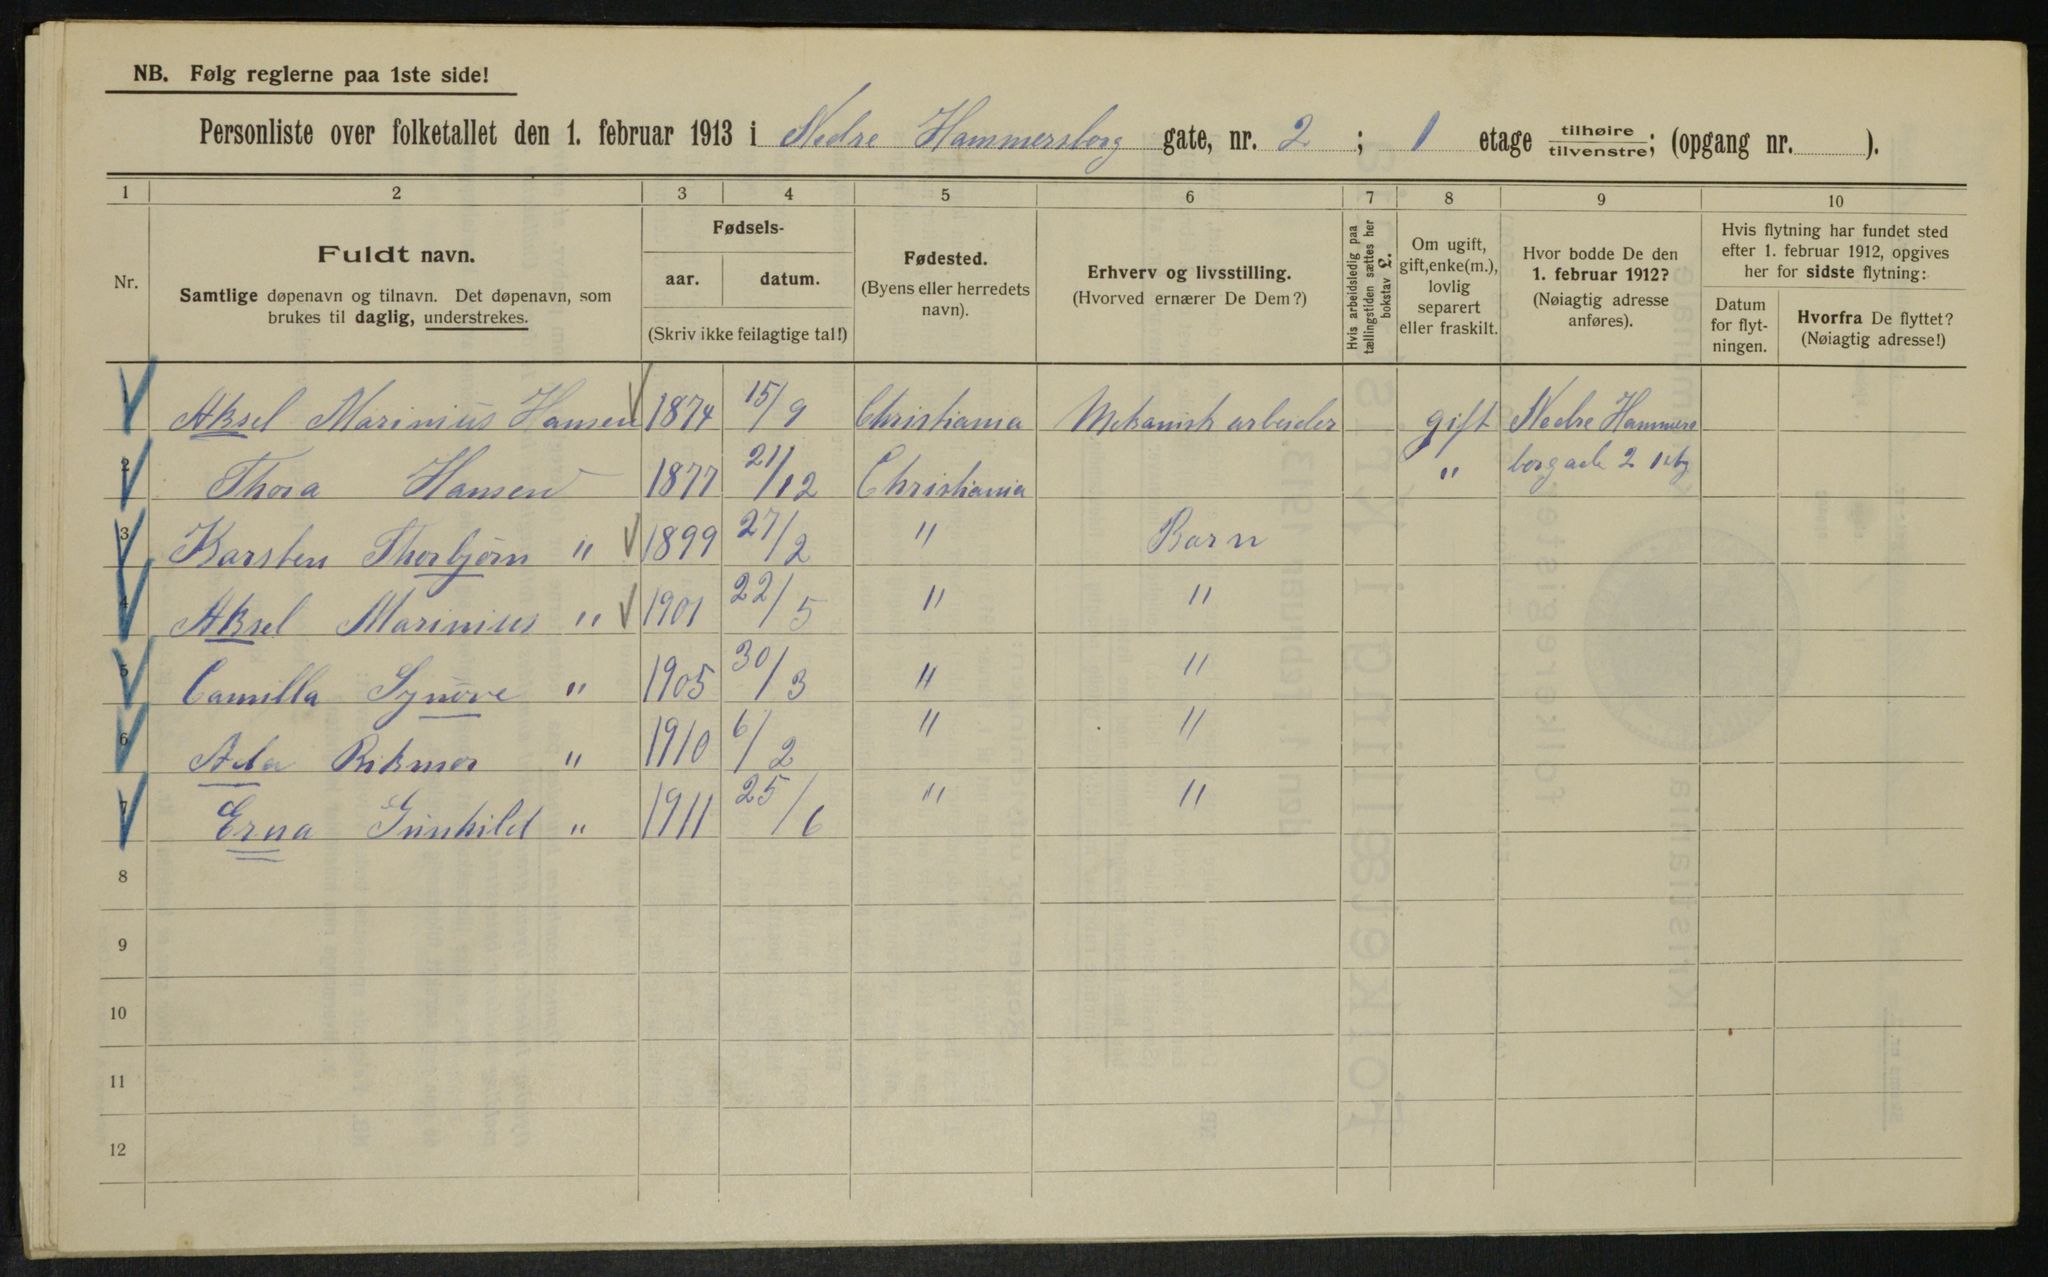 NB. Følg reglerne paa 1ste side!
Personliste over folketallet den 1. februar 1913 i Nedre Hammersborg gate, nr. 2 ; 1 etage tilhøire tilvenstre; (opgang nr. ).
1 2 3 4 5 6 7 8 9 10
Nr.
Fuldt navn.
Samtlige døpenavn og tilnavn. Det døpenavn, som
brukes til daglig, understrekes.
Fødsels-
aar. datum.
(Skriv ikke feilagtige tal!)
Fødested.
(Byens eller herredets
navn).
Erhverv og livsstilling.
(Hvorved ernærer De Dem?)
Hvis arbeidsledig paa
tællingstiden sættes her
bokstav L.
Om ugift,
gift, enke(m.),
lovlig
separert
eller fraskilt.
Hvor bodde De den
1. februar 1912?
(Nøiagtig adresse
anføres).
Hvis flytning har fundet sted
efter 1. februar 1912, opgives
her for sidste flytning:
Datum
for flyt-
ningen.
Hvorfra De flyttet?
(Nøiagtig adresse!)
1 Aksel Marinius Hansen 1874 15/9 Christiania Mekanisk arbeider gift Nedre Hammers
2 Thora Hansen 1877 21/12 Christiania " 2
3 Karsten Thorbjørn " 1899 27/2 " Barn
4 Aksel Marinius " 1901 22/5 " "
5 Camilla Synøve " 1905 30/3 " "
6 Ada Rikmor " 1910 6/2 " "
7 Erna Gunhild " 1911 25/6 " "
8
9
10
11
12